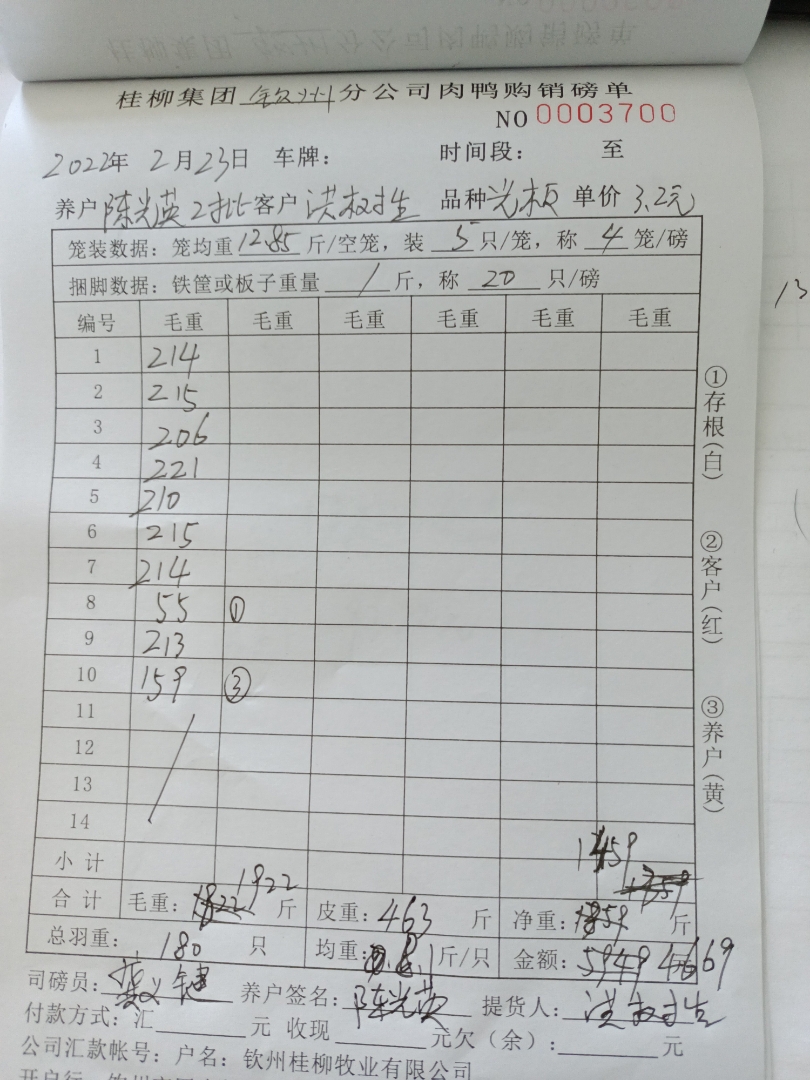 桂柳集团钦州分公司肉鸭购销磅单
NO 0003700
2022年 2月23日 车牌： 时间段： 至
养户 陈光英2批 客户 洪权生 品种 光板 单价 3.2元
笼装数据：笼均重12.85斤/空笼，装 5 只/笼，称 4 笼/磅
捆脚数据：铁筐或板子重量 / 斤，称 20 只/磅
编号 毛重 毛重 毛重 毛重 毛重 毛重
1 214
2 215
3 206
4 221
5 210
6 215
7 214
8 55 ①
9 213
10 159 ③
11
12
13
14
小计 1459
合计 毛重：1922 斤 皮重：463 斤 净重：1459 斤
总羽重： 180 只 均重：8.1斤/只 金额：
司磅员： 养户签名：陈光英 提货人：洪权生
付款方式：汇 元 收现 元欠（余）： 元
公司汇款帐号：户名：钦州桂柳牧业有限公司
①存根(白)
②客户(红)
③养户(黄)
13